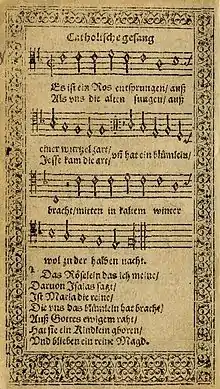 Catholische gesang
Es ist ein Ros entsprungen/ auß
Als vns die alten sungen/ auß
einer wurtzel zart/
Jesse kam die art/ vñ hat ein blümlein/
bracht/ mitten in kaltem winter
wol zu der halben nacht.
2. Das Röselein das ich meine/
Daruon Isaias sagt/
Ist Maria die reine/
Die vns das blümlein hat bracht/
Auß Gottes ewigem raht/
Hat sie ein Kindlein gboren/
Vnd blieben ein reine Magd.